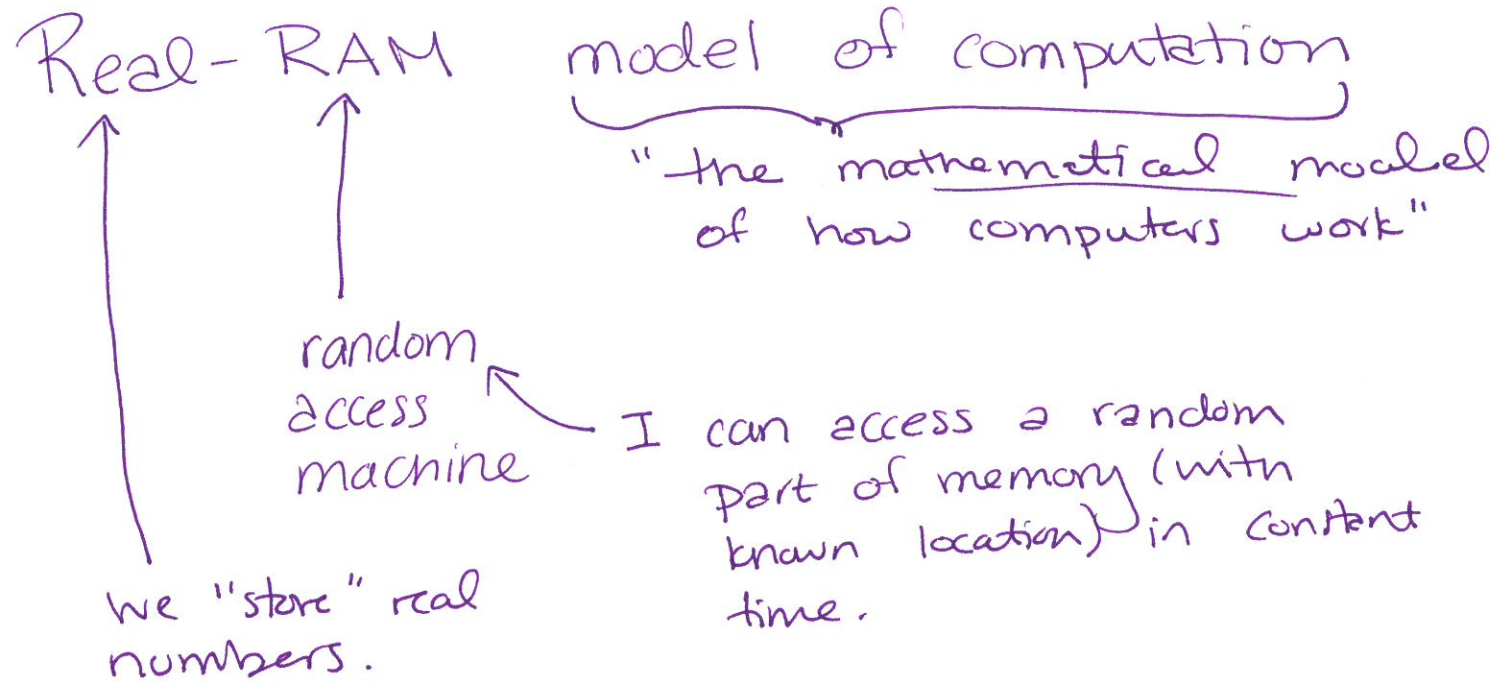 Real-RAM model of computation
"the mathematical model
of how computers work"
random
access
machine
I can access a random
part of memory (with
known location) in constant
time.
we "store" real
numbers.